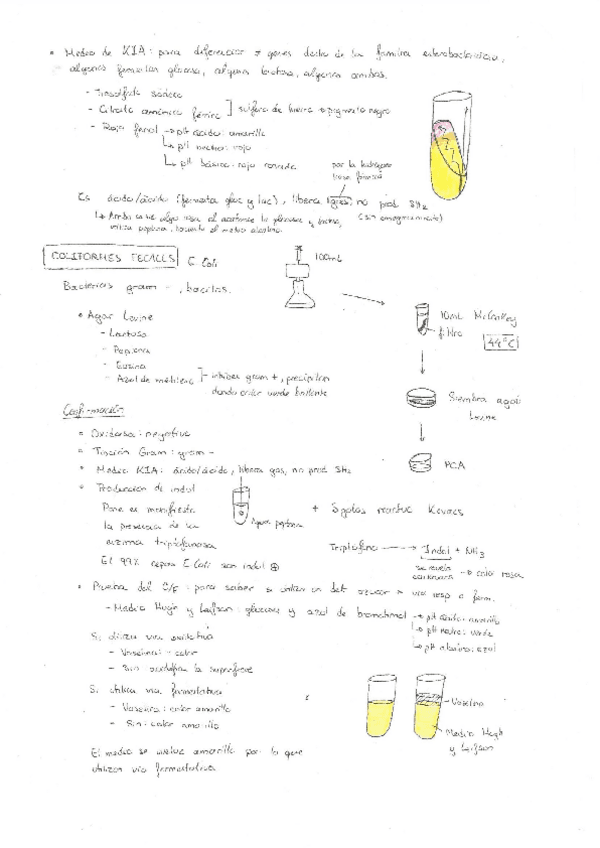 • Medio de KIA: para diferenciar ≠ genes dentro de la familia enterobacteriacea,
algunos fermentan glucosa, algunos lactosa, algunos ambas.
- Tiosulfato sódico
- Citrato amónico férrico ] sulfuro de hierro → pigmento negro
- Rojo fenol → pH ácido: amarillo
↳ pH neutro: rojo
↳ pH básico: rojo rosado
por la hidrogeno
Es ácido/ácido (fermenta gluc y lac), libera gas, no prod SH2
(sin ennegrecimiento)
COLIFORMES FECALES E Coli
100mL
Bacterias gram -, bacilos.
• Agar Levine
- Lactosa
- Peptona
- Eosina
- Azul de metileno ] - inhiben gram +, precipitan
dando color verde brillante
10mL McConkey
filtro
44°C
Siembra agar
Levine
PCA
Confirmación
• Oxidasa: negativo
• Tinción Gram: gram -
• Medio KIA: ácido/ácido, libera gas, no prod SH2
• Producción de indol
Pone en manifiesto
la presencia de la
enzima triptofanasa
El 99% cepas E Coli son indol ⊕
Agua peptona
+ 5 gotas reactivo Kovacs
Triptófano → Indol + NH3
se revela
con kovacs → color rosa
• Prueba del O/F: para saber si utiliza un det azucar x via resp o ferm.
- Medio Hugh y Leifson: glucosa y azul de bromotimol → pH ácido: amarillo
↳ pH neutro: verde
↳ pH alcalino: azul
Si utiliza via oxidativa
- Vaselina: - color
- Sin: oxidifica la superficie
Si utiliza via fermentativa
- Vaselina: color amarillo
- Sin: color amarillo
Vaselina
Medio Hugh
y Leifson
El medio se vuelve amarillo por lo que
utilizan via fermentativa